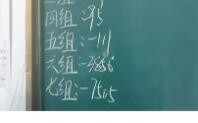 四组:95
五组:-111
六组:-3856
七组:-7505